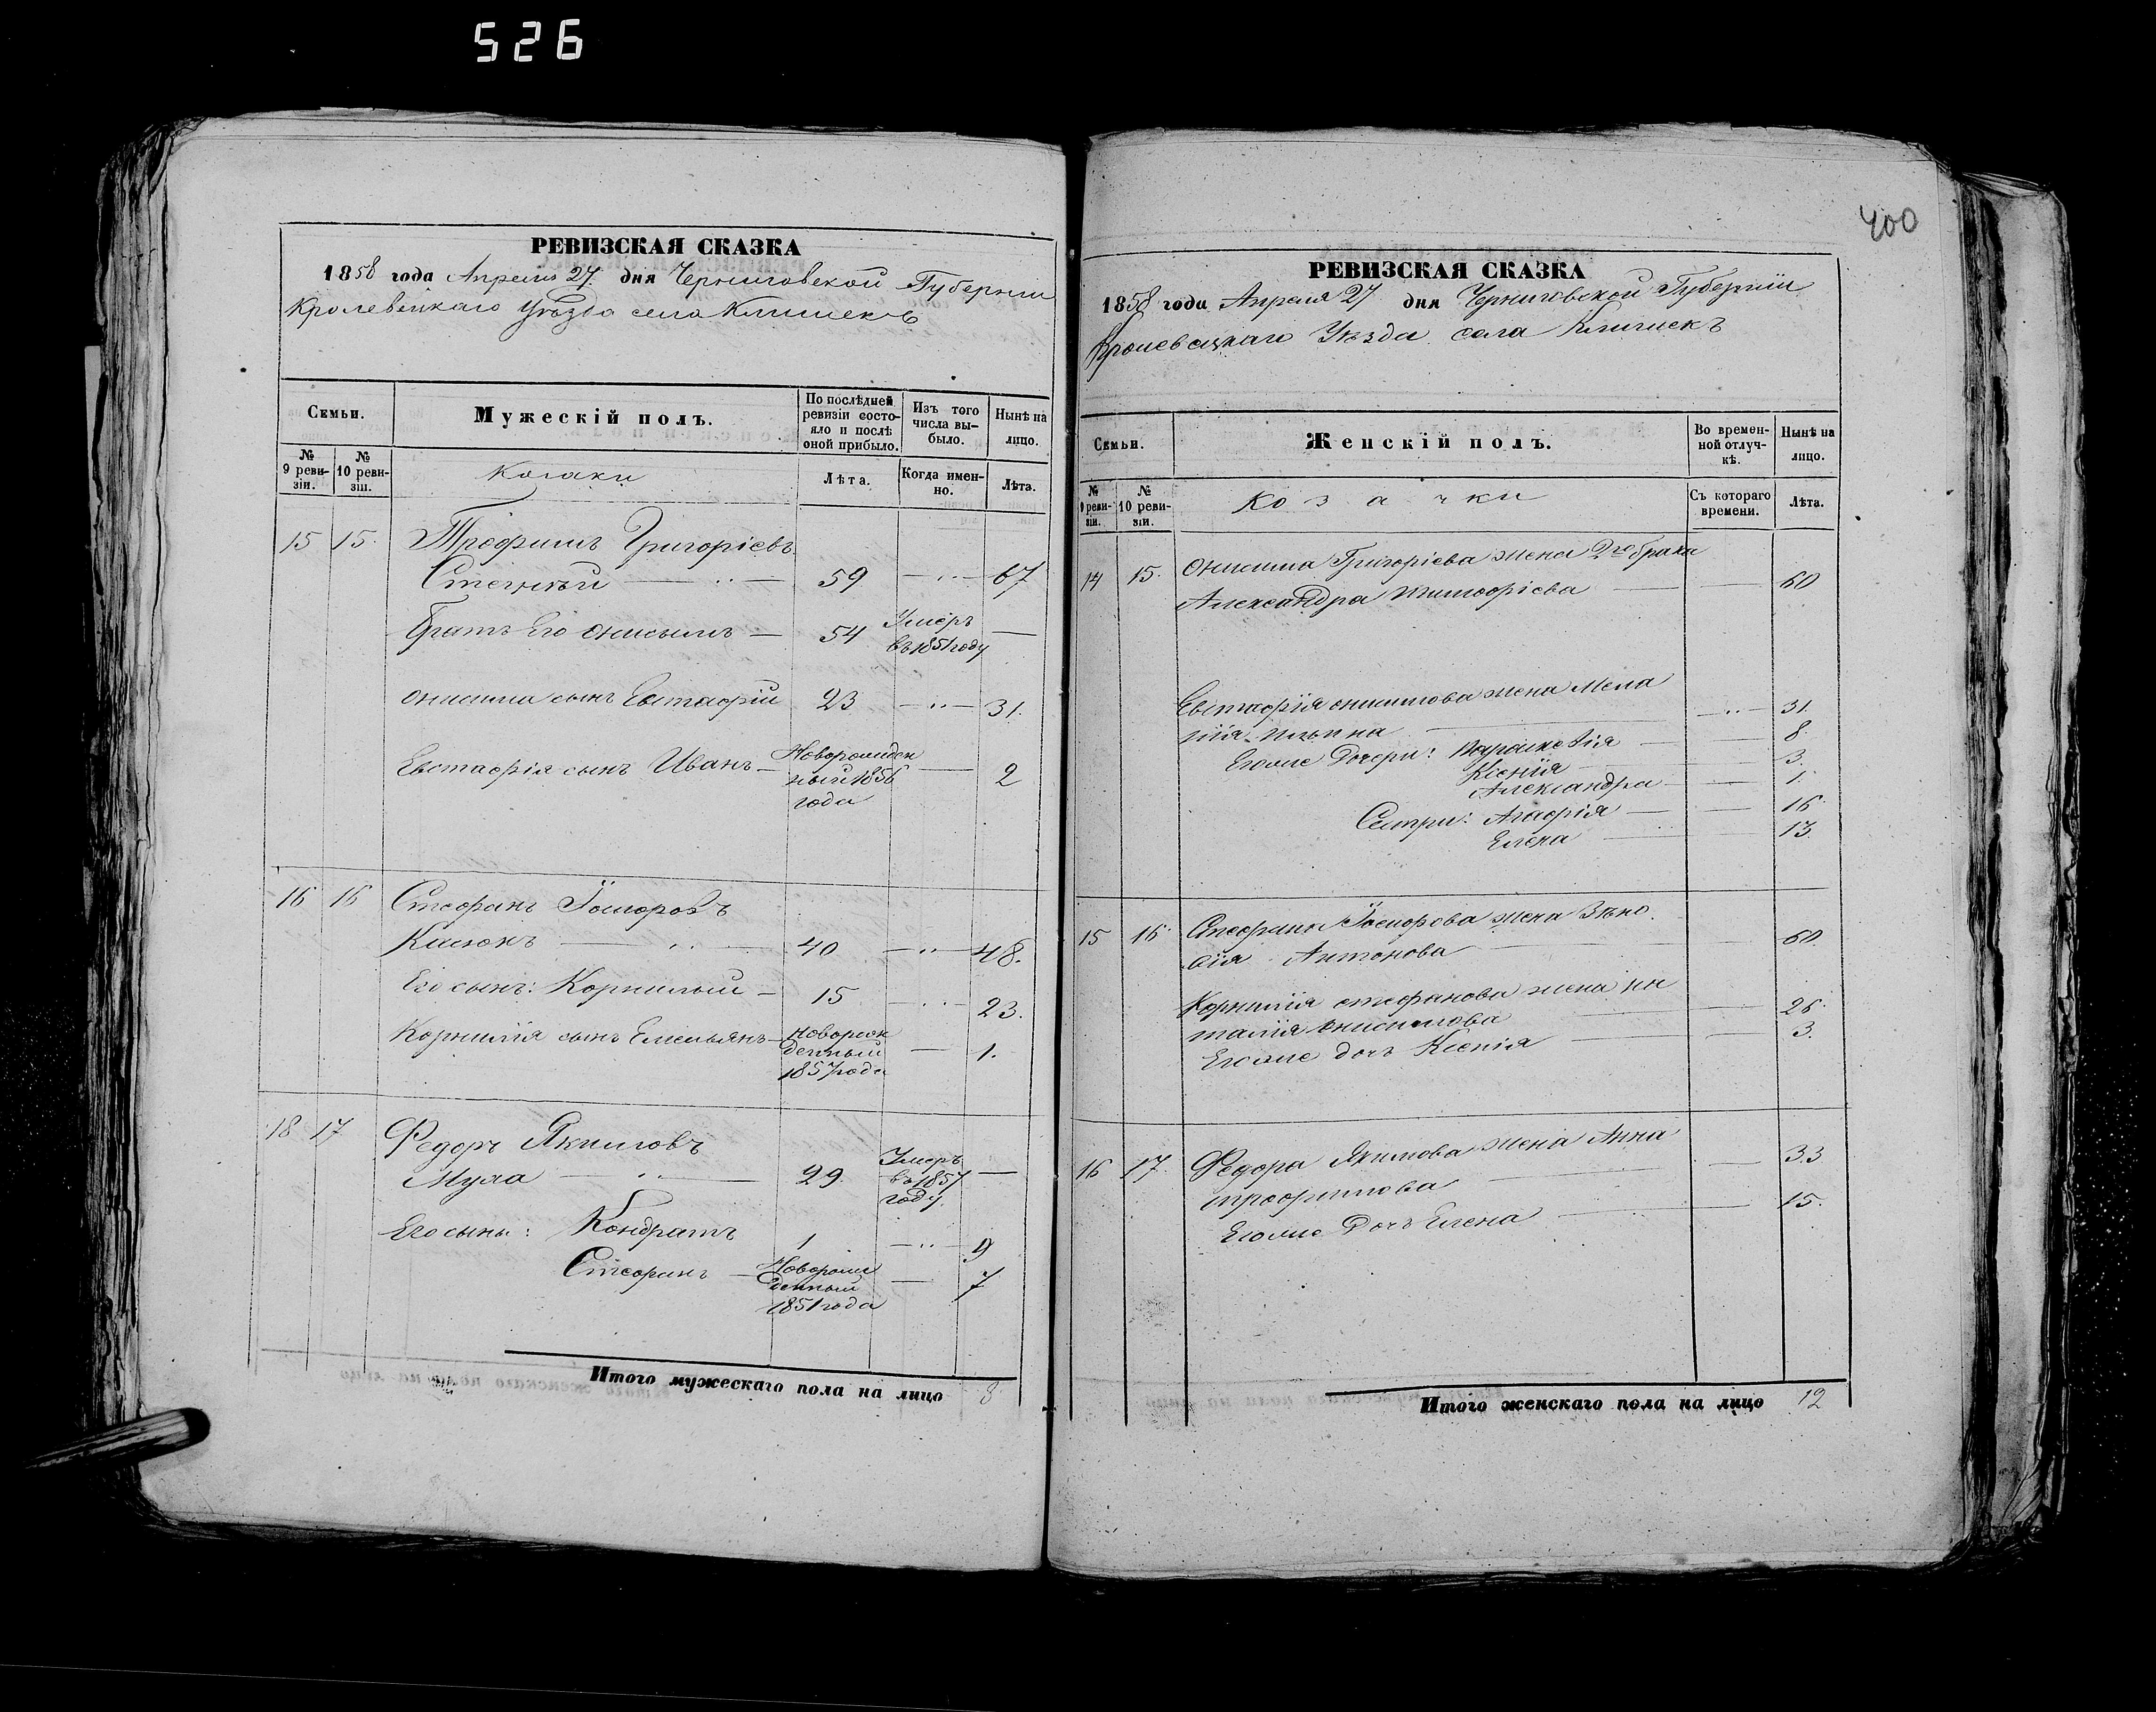 526
РЕВИЗСКАЯ СКАЗКА
1858 года Апреля 27 дня Черниговской Губернии
Кролевецкаго Уѣзда села Клишекъ
Семьи.
Мужескій полъ.
По послѣдней ревизіи состояло и послѣ оной прибыло.
Изъ того числа выбыло.
Нынѣ на лицо.
№ 9 ревизіи.
№ 10 ревизіи.
Козаки
Лѣта.
Когда именно.
Лѣта.
15 15 Трофимъ Григоріевъ
59 67
Братъ Его Онисимъ 54 Умеръ въ 1851 году
Онисима сынъ Евстафій 23 31.
Евстафія сынъ Иванъ Новорожденный 1856 года 2
16 16 Стефанъ
40 48.
Его сынъ: Корнилий 15 23.
Корнилія сынъ Емельянъ Новорожденный 1857 года 1.
18 17 Федоръ Якимовъ
29. Умеръ въ 1857 году
Его сыны: Кондратъ 1 9
Стефанъ Новорожденный 1851 года 7
Итого мужескаго пола на лицо 8
400
РЕВИЗСКАЯ СКАЗКА
1858 года Апреля 27 дня Черниговской Губерніи
Кролевецкаго Уѣзда села Клишекъ
Семьи.
Женскій полъ.
Во временной отлучкѣ.
Нынѣ на лицо.
№ 9 ревизіи.
№ 10 ревизіи.
Козачки
Съ котораго времени.
Лѣта.
14 15. Онисима Григоріева жена 2го брака
Александра Тимофіева 60
Евстафія Онисимова жена Мела
нія Ильина 31.
Егоже Дочери: Параскевія 8.
Ксенія 3.
Александра 1.
Сестри: Агафія 16.
Елена 13.
15 16. Стефана жена Зѣно
вія Антонова 60.
Корнилія Стефанова жена На
талія Онисимова 26.
Егоже дочь Ксенія 3.
16 17. Федора Якимова жена Анна
Трофимова 33
Егоже Дочь Елена 15.
Итого женскаго пола на лицо 12